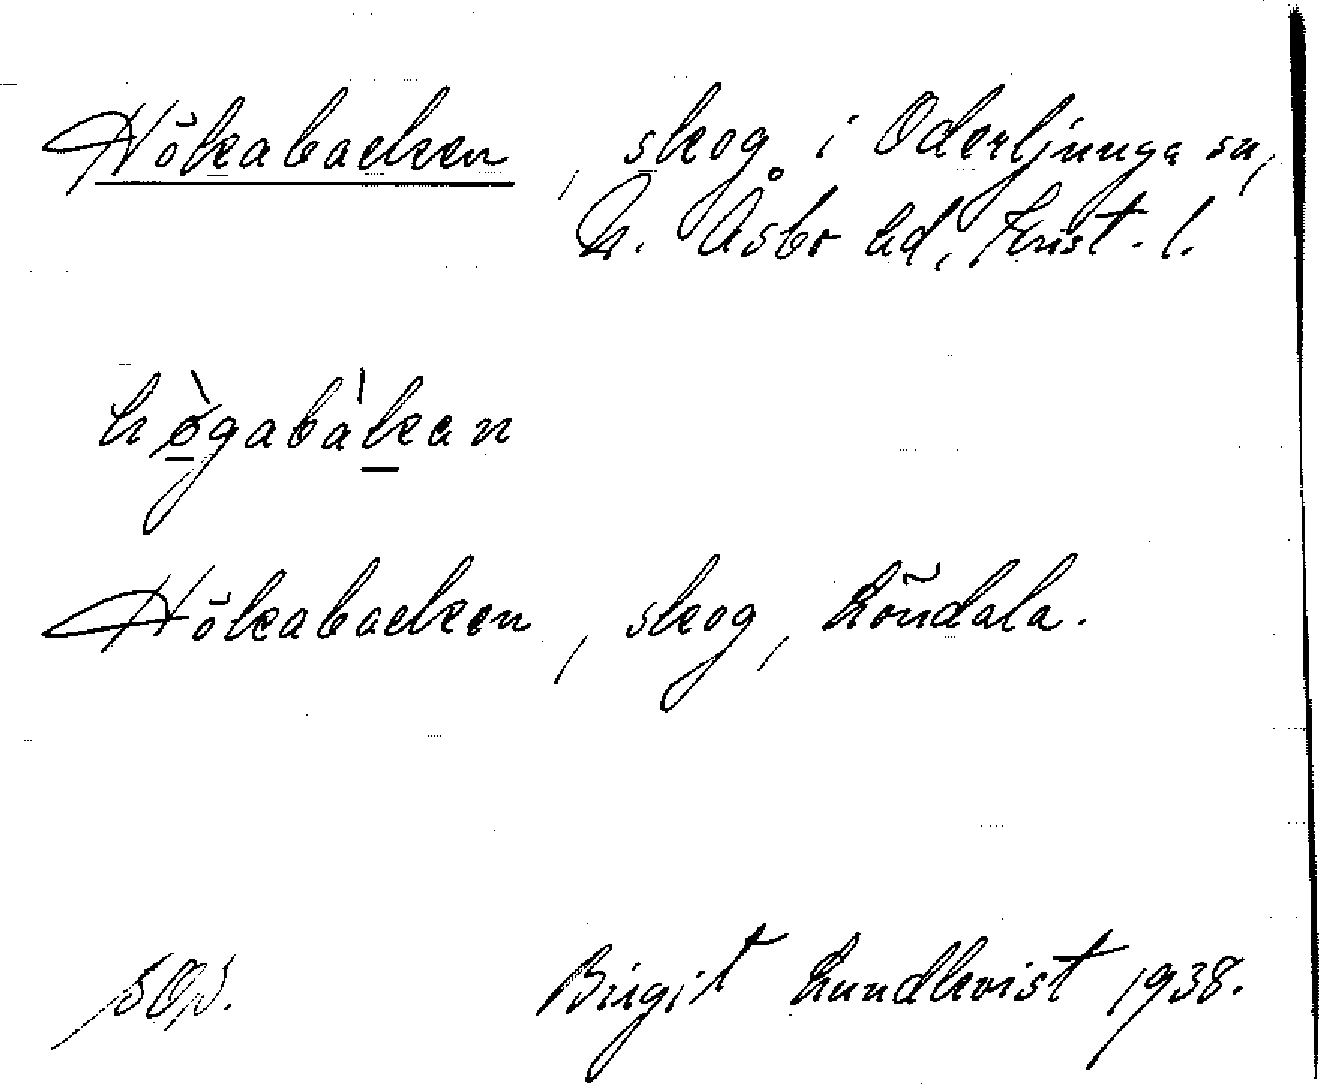 Hökabacken, skog i Oderljunga sn,
N. Åsbo hd, Krist. l.
hø̀gabàkan
Hökabacken, skog, Löndala.
Birgit Lundkvist 1938.